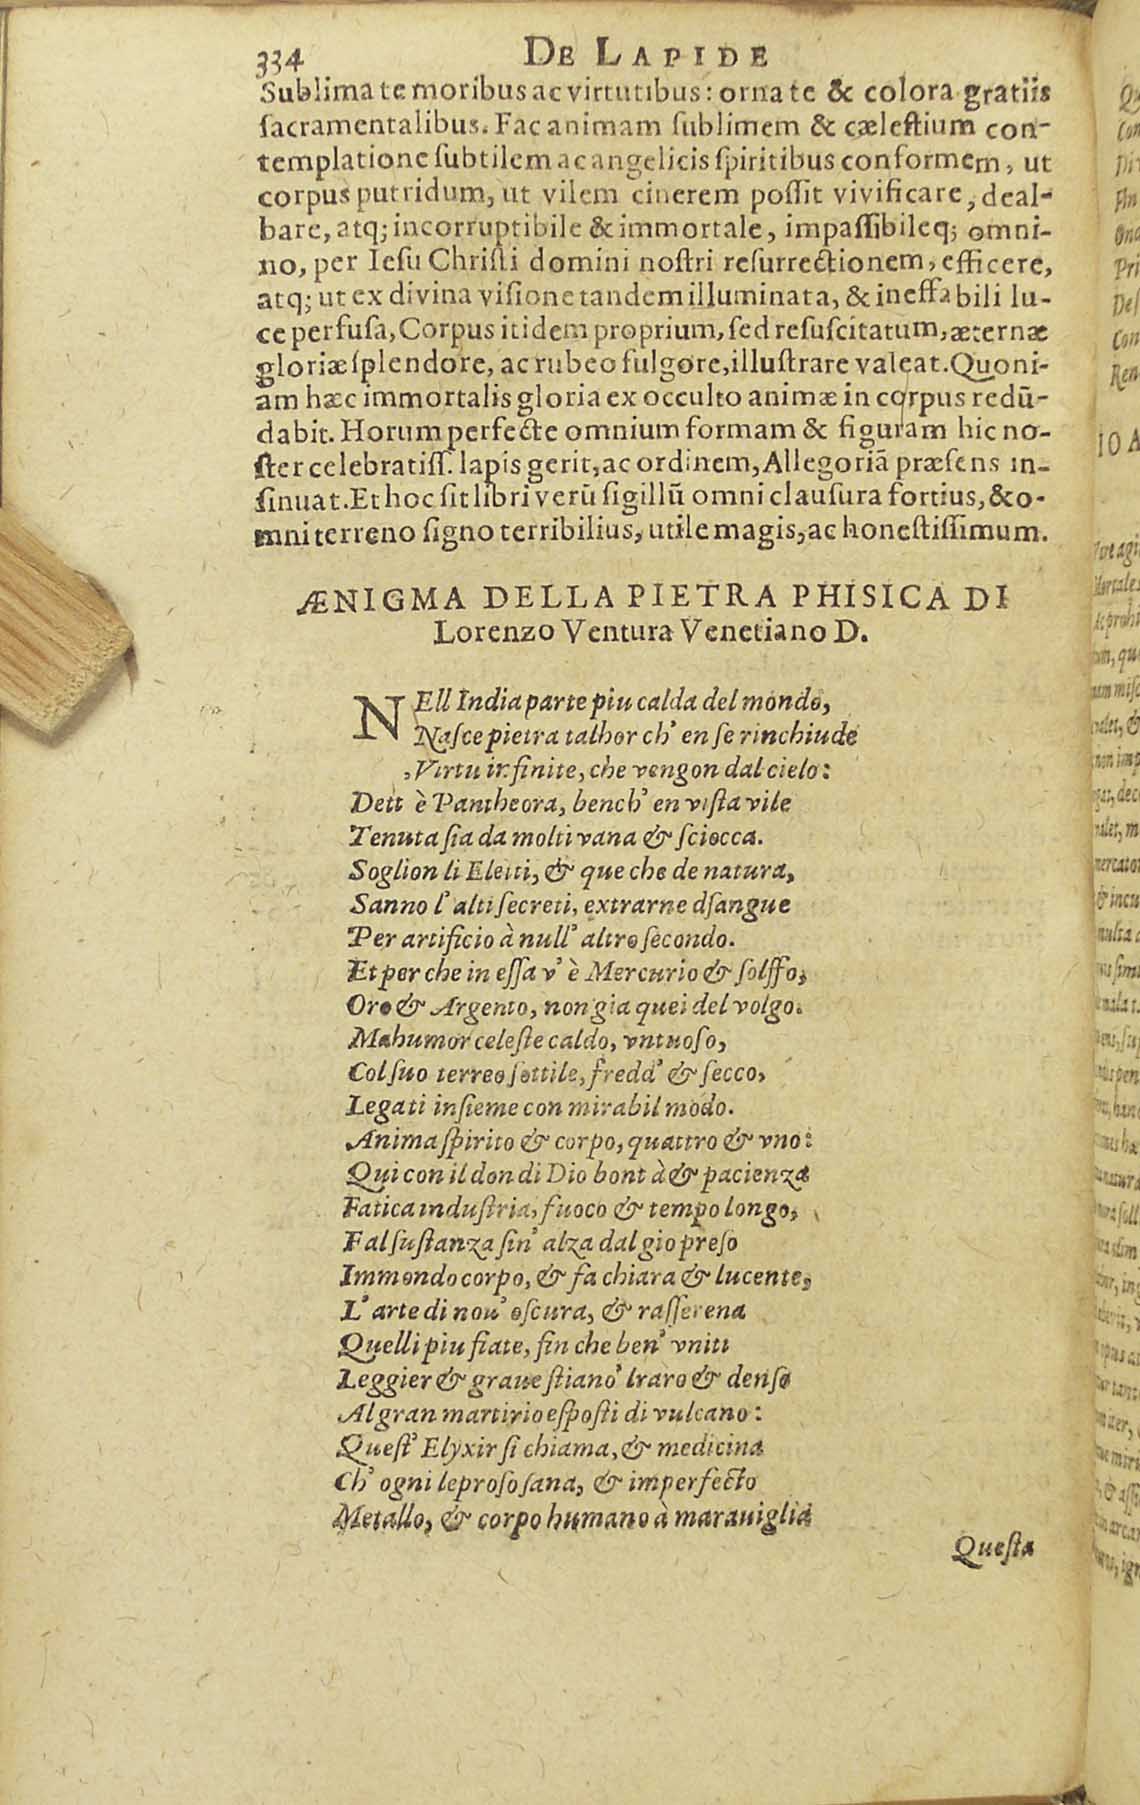 334 DE LAPIDE
Sublimate moribus ac virtutibus: ornate & colora gratiis
sacramentalibus. Fac animam sublimem & cælestium con-
templatione subtilem ac angelicis spiritibus conformem, ut
corpus putridum, ut vilem cinerem possit vivificare, deal-
bare, atq; incorruptibile & immortale, impassibileq; omni-
no, per Iesu Christi domini nostri resurrectionem, efficere,
atq; ut ex divina visione tandem illuminata, & ineffabili lu-
ce perfusa, Corpus itidem proprium, sed resuscitatum, æternæ
gloriæ splendore, ac rubeo fulgore, illustrare valeat. Quoni-
am hæc immortalis gloria ex occulto animæ in corpus redū-
dabit. Horum perfecte omnium formam & figuram hic no-
ster celebratiss. lapis gerit, ac ordinem, Allegoriā præsens in-
sinuat. Et hoc sit libri verū sigillū omni clausura fortius, & o-
mni terreno signo terribilius, utile magis, ac honestissimum.
ÆNIGMA DELLA PIETRA PHISICA DI
Lorenzo Ventura Venetiano D.
NEll India parte piu calda del mondo,
Nasce pietra talhor ch' en se rinchiude
Virtu infinite, che vengon dal cielo:
Dett è Pantheora, bench' en vista vile
Tenuta sia da molti vana & sciocca.
Soglion li Eletti, & que che de natura,
Sanno l' alti secreti, extrarne dsangue
Per artificio à null' altro secondo.
Et per che in essa v' è Mercurio & solffo,
Oro & Argento, non gia quei del volgo.
Ma humor celeste caldo, vntuoso,
Col suo terreo sottile, fredd' & secco,
Legati insieme con mirabil modo.
Anima spirito & corpo, quattro & vno:
Qui con il don di Dio bontà & pacienza
Fatica industria, fuoco & tempo longo,
Fal sustanza sin' alza dal gio preso
Immondo corpo, & fa chiara & lucente,
L' arte di nou' oscura, & rasserena
Quelli piu fiate, fin che ben' vniti
Leggier & graue stiano' lraro & denso
Al gran martirio esposti di vulcano:
Quest' Elyxir si chiama, & medicina
Ch' ogni leproso sana, & imperfecto
Metallo, & corpo humano à marauiglia
Questa